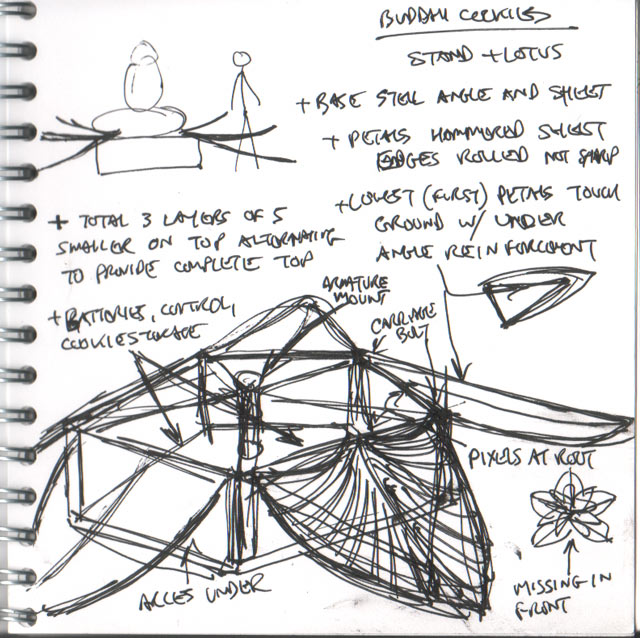 BUDDAH COOKIES
STAND + LOTUS
+ BASE STEEL ANGLE AND SHEET
+ PETALS HAMMERED SHEET
EDGES ROLLED NOT SHARP
+ LOWEST (FIRST) PETALS TOUCH
GROUND W/ UNDER
ANGLE REINFORCMENT
+ TOTAL 3 LAYERS OF 5
SMALLER ON TOP ALTERNATING
TO PROVIDE COMPLETE TOP
+ BATTERIES, CONTROL,
COOKIE STORAGE
ARMATURE
MOUNT
CARRIAGE
BOLT
PIXELS AT ROOT
ACCES UNDER
MISSING IN
FRONT